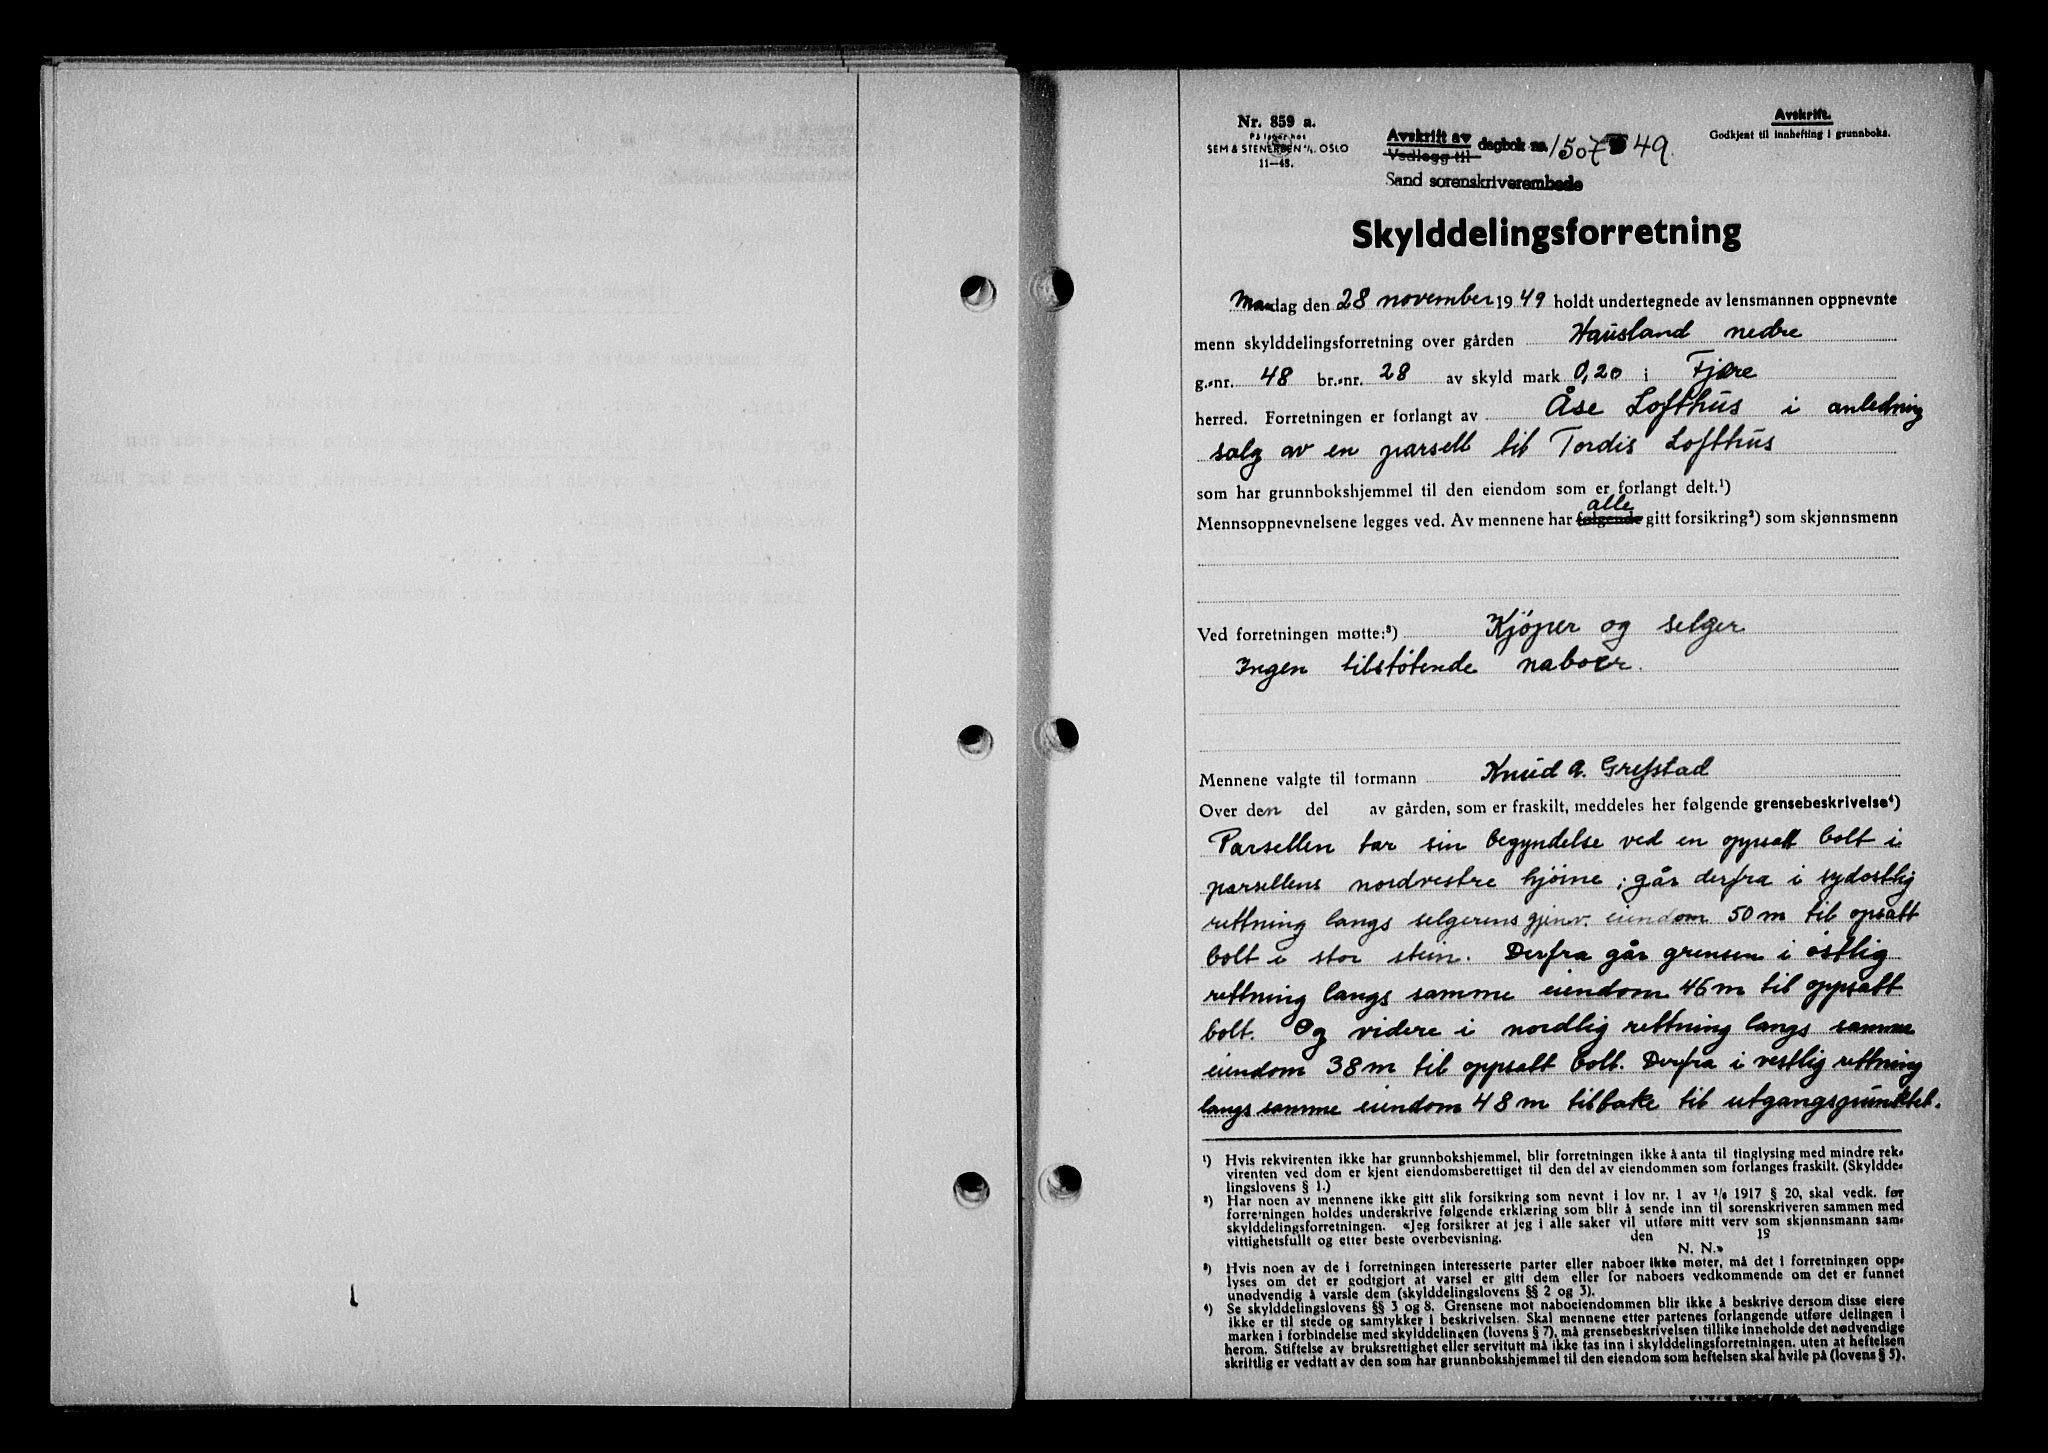 Nr. 859 a.
På lager hos
SEM & STENERSEN A/S. OSLO
11—48.
Avskrift av
Vedlegg til
dagbok nr. 1507 49.
Sand sorenskriverembede
Avskrift.
Godkjent til innhefting i grunnboka.
Skylddelingsforretning
Mandag den 28 november 1949 holdt undertegnede av lensmannen oppnevnte
menn skylddelingsforretning over gården Hausland nedre
g.-nr. 48 br.-nr. 28 av skyld mark 0,20 i Fjære
herred. Forretningen er forlangt av Åse Lofthus i anledning
salg av en parsell til Tordis Lofthus
som har grunnbokshjemmel til den eiendom som er forlangt delt.¹)
alle
Mennsoppnevnelsene legges ved. Av mennene har følgende gitt forsikring²) som skjønnsmenn
Ved forretningen møtte:³) Kjøper og selger
Ingen tilstøtende naboer.
Mennene valgte til formann Knud A. Grefstad
Over den del av gården, som er fraskilt, meddeles her følgende grensebeskrivelse⁴)
Parsellen tar sin begyndelse ved en oppsatt bolt i
parsellens nordvestre hjørne; går derfra i sydostlig
rettning langs selgerens gjenv. eiendom 50 m til opsatt
bolt i stor stein. Derfra går grensen i østlig
rettning langs samme eiendom 46 m til oppsatt
bolt. Og videre i nordlig rettning langs samme
eiendom 38 m til oppsatt bolt. Derfra i vestlig rettning
langs samme eiendom 48 m tilbake til utgangspunktet.
¹) Hvis rekvirenten ikke har grunnbokshjemmel, blir forretningen ikke å anta til tinglysing med mindre rek-
virenten ved dom er kjent eiendomsberettiget til den del av eiendommen som forlanges fraskilt. (Skyldde-
lingslovens § 1.)
²) Har noen av mennene ikke gitt slik forsikring som nevnt i lov nr. 1 av 1/6 1917 § 20, skal vedk. før
forretningen holdes underskrive følgende erklæring som blir å sende inn til sorenskriveren sammen med
skylddelingsforretningen. «Jeg forsikrer at jeg i alle saker vil utføre mitt verv som skjønnsmann sam-
vittighetsfullt og etter beste overbevisning. den 19
N. N.»
³) Hvis noen av de i forretningen interesserte parter eller naboer ikke møter, må det i forretningen opp-
lyses om det er godtgjort at varsel er gitt dem eller for naboers vedkommende om det er funnet
unødvendig å varsle dem (skylddelingslovens §§ 2 og 3).
⁴) Se skylddelingslovens §§ 3 og 8. Grensene mot naboeiendommen blir ikke å beskrive dersom disse eiere
ikke er til stede og samtykker i beskrivelsen. Skal mennene etter partenes forlangende utføre delingen i
marken i forbindelse med skylddelingen (lovens § 7), må grensebeskrivelsen tillike inneholde det nødvendige
herom. Stiftelse av bruksrettighet eller servitutt må ikke tas inn i skylddelingsforretningen, uten at heftelsen
skriftlig er vedtatt av den som har grunnbokshjemmel til den eiendom som heftelsen skal hvile på (lovens § 5).